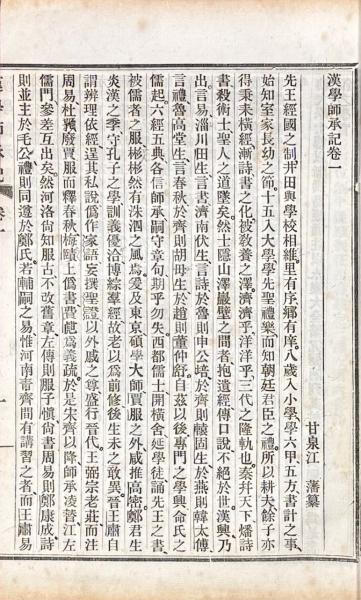 漢學師承記卷一
甘泉江　藩纂
先王經國之制井田與學校相維里有序鄉有庠八歲入小學學六甲五方書計之事
始知室家長幼之節十五入大學學先聖禮樂而知朝廷君臣之禮所以耕夫餘子亦
得秉耒橫經漸詩書之化被敎養之澤濟濟乎洋洋乎三代之隆軌也秦幷天下燔詩
書殺術士聖人之道墜矣然士隱山澤巖壁之間者抱遺經傳口說不絕於世漢興乃
出言易淄川田生言書濟南伏生言詩於魯則申公培於齊則轅固生於燕則韓太傅
言禮魯高堂生言春秋於齊則胡毋生於趙則董仲舒自茲以後專門之學興命氏之
儒起六經五典各信師承嗣守章句期乎勿失西都儒士開橫舍延學徒誦先王之書
被儒者之服彬彬然有洙泗之風焉爰及東京碩學大師賈服之外咸推高密鄭君生
炎漢之季守孔子之學訓義優洽博綜羣經故老以爲前修後生未之敢異晉王肅自
謂辨理依經逞其私說僞作家語妄撰聖證以外戚之尊盛行晉代王弼宗老莊而注
周易杜預廢賈服而釋春秋梅賾上僞書費甝爲義疏於是宋齊以降師承凌替江左
儒門參差互出矣然河洛尙知服古不改舊章左傳則服子愼尙書周易則鄭康成詩
則並主於毛公禮則同遵於鄭氏若輔嗣之易惟河南靑齊間有講習之者而王肅易